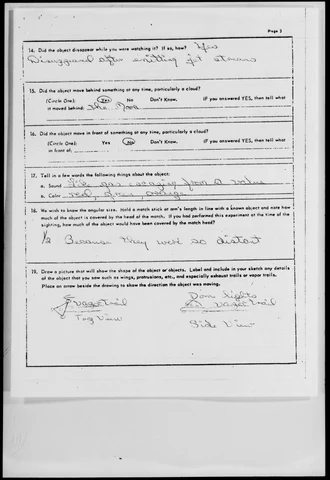 Page 3
14. Did the object disappear while you were watching it? If so, how? Yes
Disappeared after emitting jet streams
15. Did the object move behind something at any time, particularly a cloud?
(Circle One): Yes No Don't Know. IF you answered YES, then tell what
it moved behind: the Moon
16. Did the object move in front of something at any time, particularly a cloud?
(Circle One): Yes No Don't Know. IF you answered YES, then tell what
in front of:
17. Tell in a few words the following things about the object:
a. Sound like gas escaping from a valve
b. Color red, green, orange
18. We wish to know the angular size. Hold a match stick at arm's length in line with a known object and note how
much of the object is covered by the head of the match. If you had performed this experiment at the time of the
sighting, how much of the object would have been covered by the match head?
1/2 Because they were so distant
19. Draw a picture that will show the shape of the object or objects. Label and include in your sketch any details
of the object that you saw such as wings, protrusions, etc., and especially exhaust trails or vapor trails.
Place an arrow beside the drawing to show the direction the object was moving.
Dom lights
Vapor trail
Vapor trail
Top View
Side View